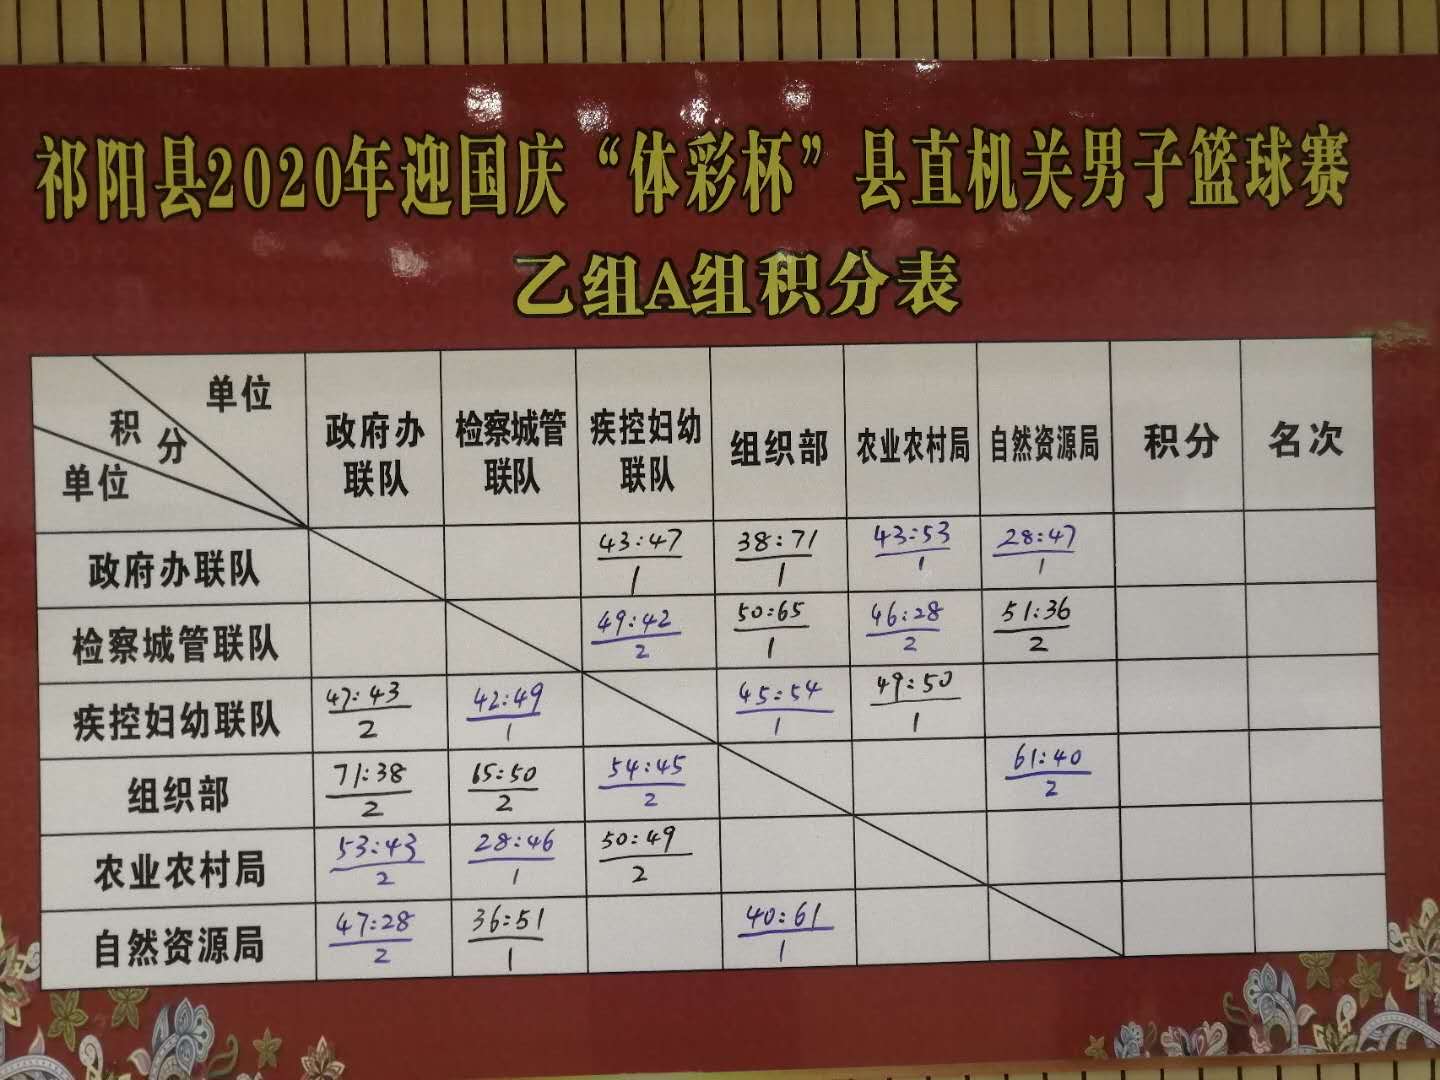 祁阳县2020年迎国庆“体彩杯”县直机关男子篮球赛
乙组A组积分表
单位 积分 单位 政府办联队 检察城管联队 疾控妇幼联队 组织部 农业农村局 自然资源局 积分 名次
政府办联队 43:47 1 38:71 1 43:53 1 28:47 1
检察城管联队 49:42 2 50:65 1 46:28 2 51:36 2
疾控妇幼联队 47:43 2 42:49 1 45:54 1 49:50 1
组织部 71:38 2 65:50 2 54:45 2 61:40 2
农业农村局 53:43 2 28:46 1 50:49 2
自然资源局 47:28 2 36:51 1 40:61 1